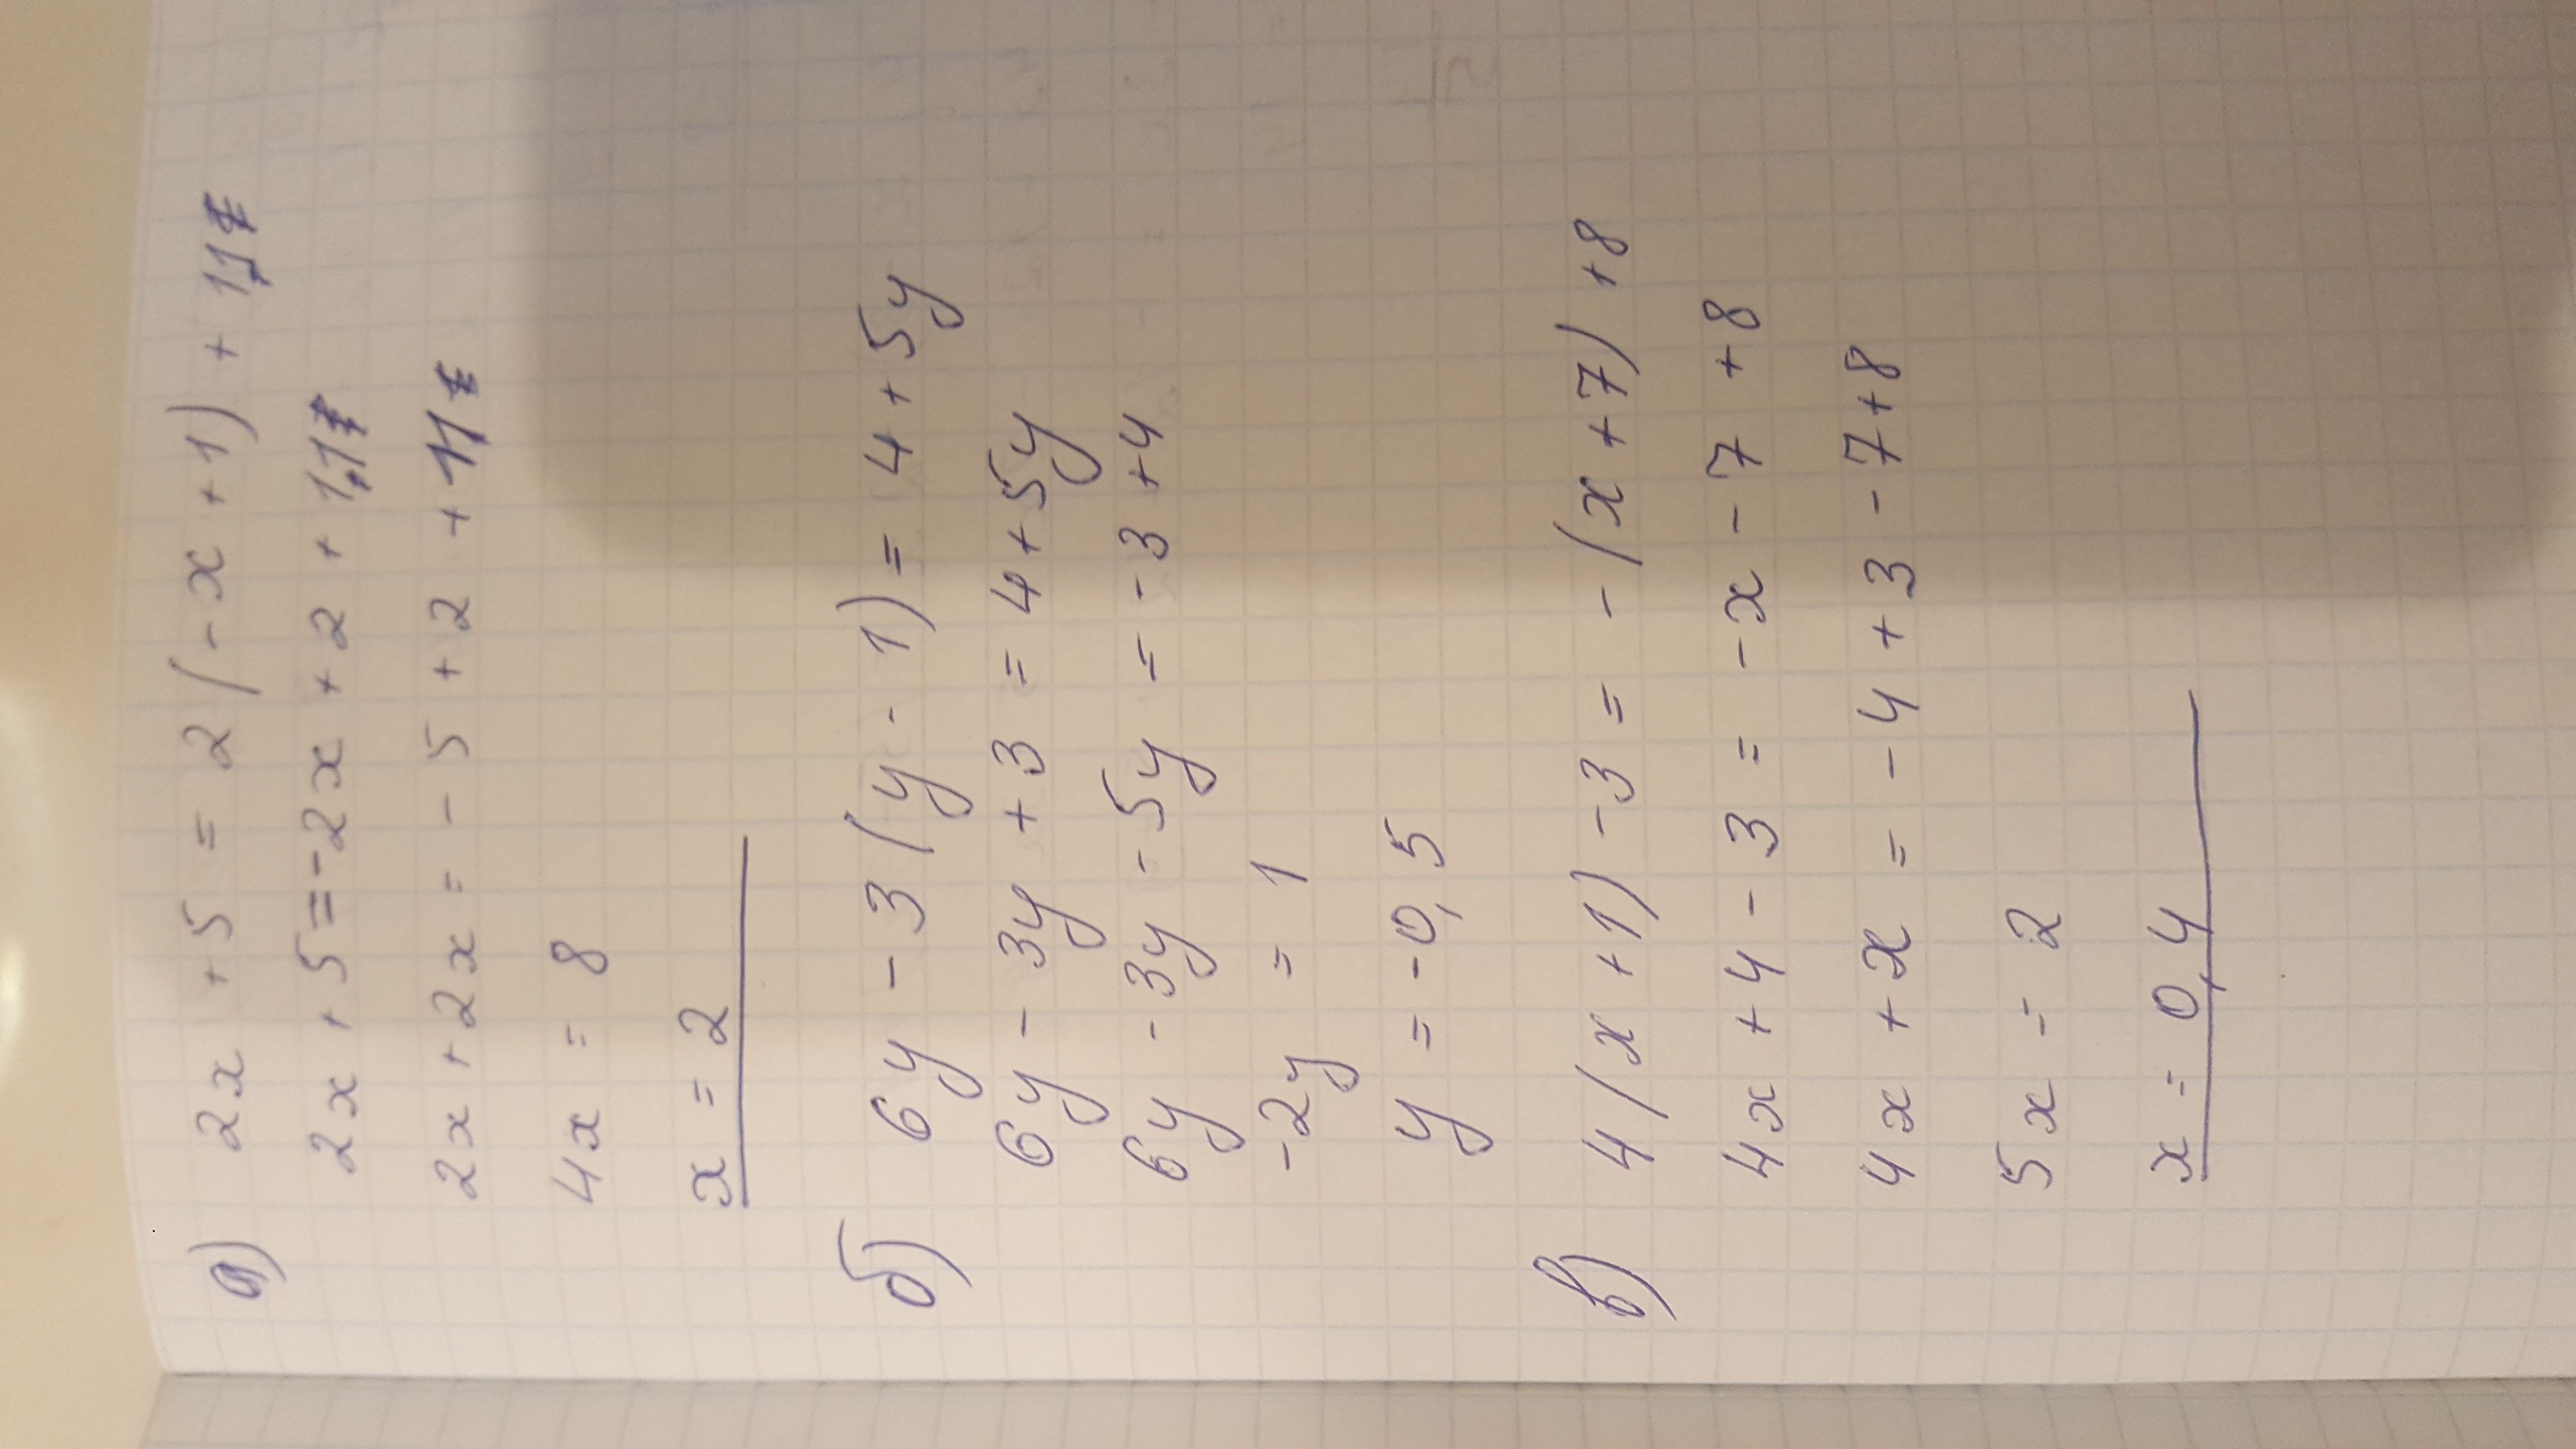 а) 2x + 5 = 2(-x + 1) + 11
2x + 5 = -2x + 2 + 11
2x + 2x = -5 + 2 + 11
4x = 8
x = 2
б) 6y - 3(y - 1) = 4 + 5y
6y - 3y + 3 = 4 + 5y
6y - 3y - 5y = -3 + 4
-2y = 1
y = -0,5
в) 4(x + 1) - 3 = -(x + 7) + 8
4x + 4 - 3 = -x - 7 + 8
4x + x = -4 + 3 - 7 + 8
5x = 2
x = 0,4